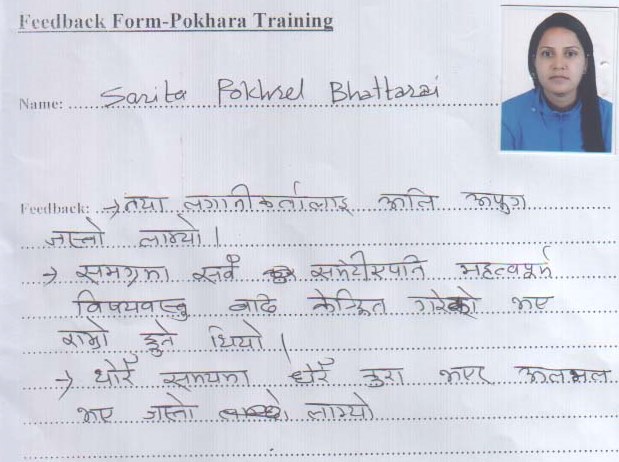 Feedback Form-Pokhara Training
Name: Sarita Pokhrel Bhattarai
Feedback: → नया लगानीकर्तालाइ अति अपुग
जास्तो लाग्यो ।
→ समग्रमा सबै समेटीएपनि महत्वपूर्ण
विषयवस्तु बाट केन्द्रित गरेको भए
राम्रो हुने थियो ।
→ थोरै समयमा धेरै कुरा भएर अलमल
भए जास्तो लाग्यो